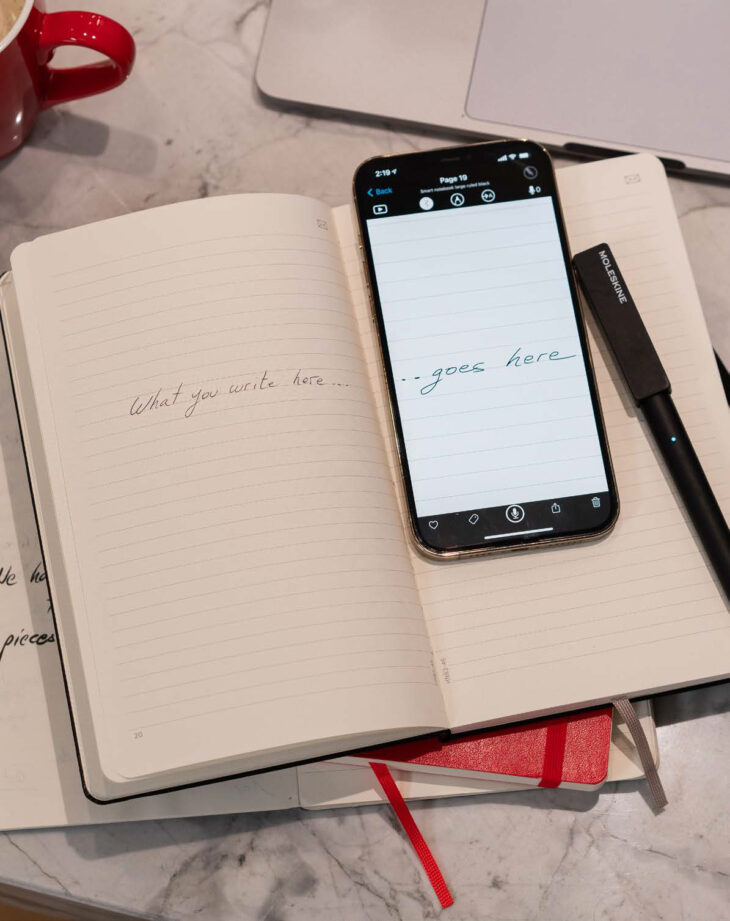 2:19
Back
Page 19
Smart notebook large ruled black
0
MOLESKINE
What you write here...
..goes here
We ha
pieces
20